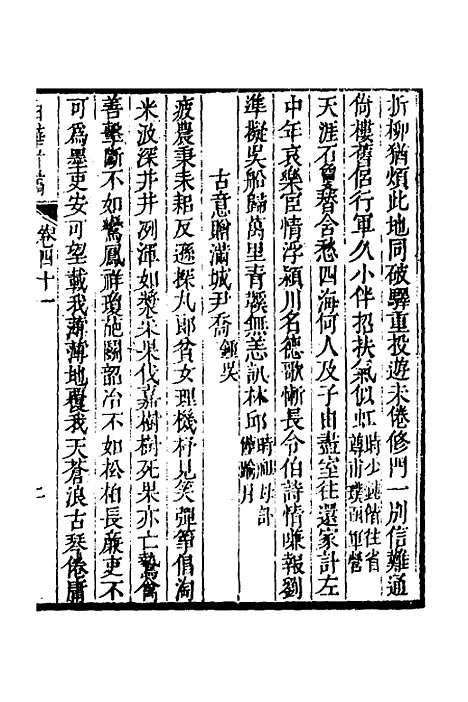 折柳猶煩此地同破驛重投遊未倦修門一別信難通
倚樓舊侶行軍久小伴招扶氣似虹時少 偕往省尊甫璞 軍營
天涯石 替含愁四海何人及子由盡室往還家計左
中年哀樂臣情浮潁川名德歌慚長令伯詩情嗛報劉
準擬吳船歸萬里青谿無恙訊林邱時 母訃 月
古意贈滿城尹喬 鍾吳
疲農秉耒耜反遜探丸郎貧女理機杼見笑彈箏倡淘
米波深井井冽渾如漿采果伐嘉樹樹死果亦亡鷙禽
善擊斷不如鸞鳳祥瓊葩鬬韶冶不如松柏長廉吏不
可為墨吏安可望載我薄薄地覆我天蒼浪古琴倦庸
白華 稿 卷四十一